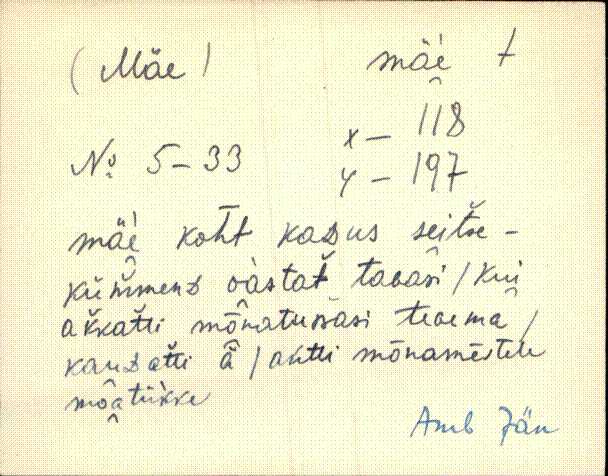 (Mäe) mäè †
x — 118
No 5-33 y — 197
mäè koht kaᴅus seitse-
kümmenᴅ òastat tavasi / kui
akkatti mõnatussasi tevema /
kauᴅatti ä̂ / antti mõnameistele
môatükke
Amb Jän